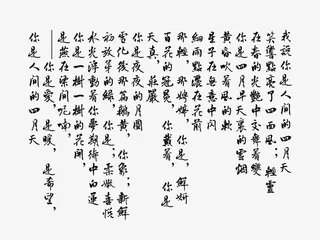 我說你是人間的四月天
笑響點亮了四面風；輕靈
在春的光艷中交舞著變
你是四月早天裏的雲煙
黃昏吹著風的軟
星子在無意中閃
細雨點灑在花前
那輕，那娉婷，你是，鮮妍
百花的冠冕你戴著，你是
天真，莊嚴
你是夜夜的月圓
雪化後那篇鵝黃，你象；新鮮
初放芽的綠，你是；柔嫩喜悅
水光浮動著你夢期待中白蓮
你是一樹一樹的花開，
是燕在梁間呢喃，
——你是愛，是暖，是希望，
你是人間的四月天